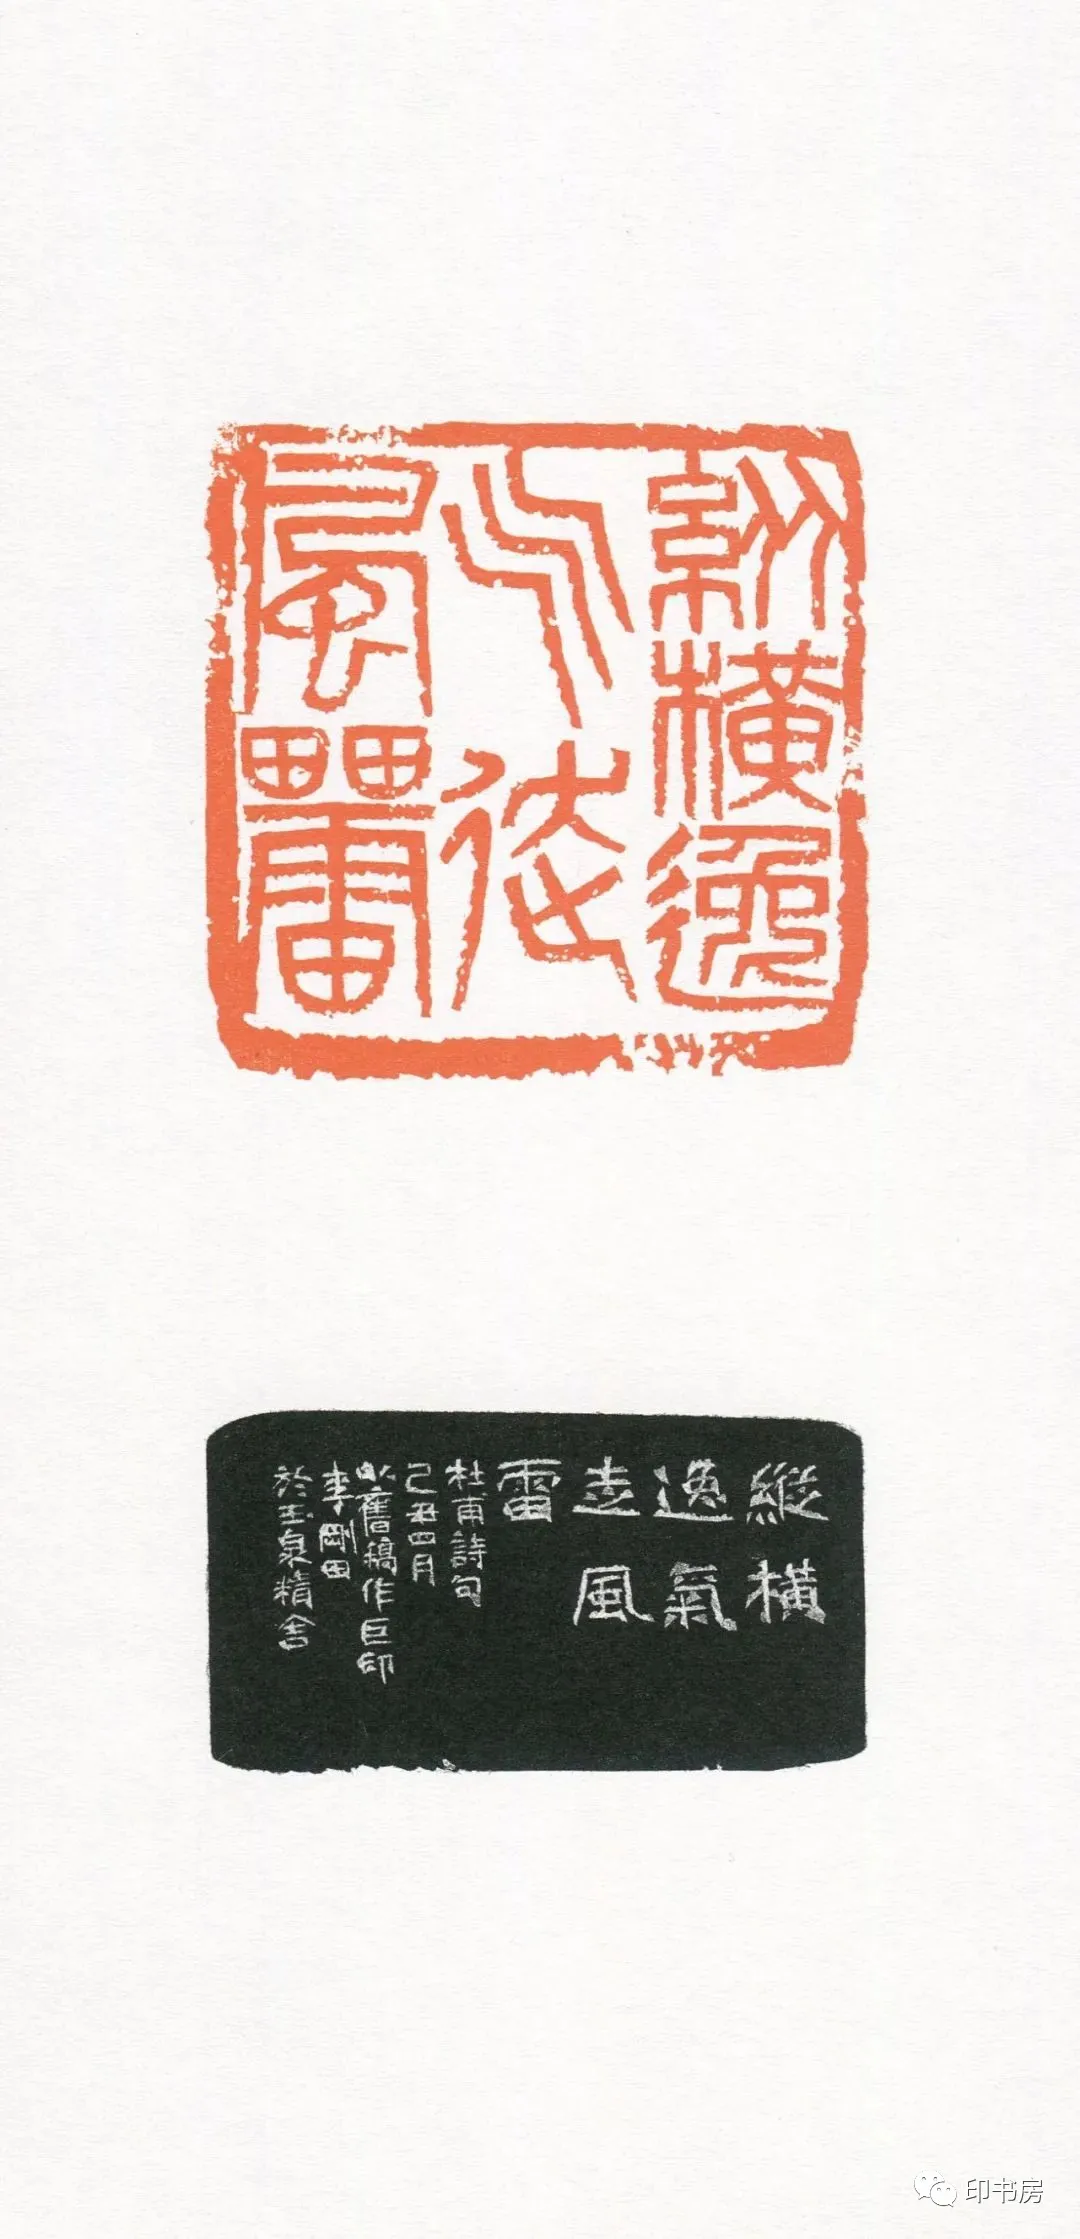 縱橫逸
气走
風雷
縱橫
逸氣
走風
雷
杜甫詩句
己丑四月
以舊稿作巨印
李剛田
於玉泉精舍
印书房